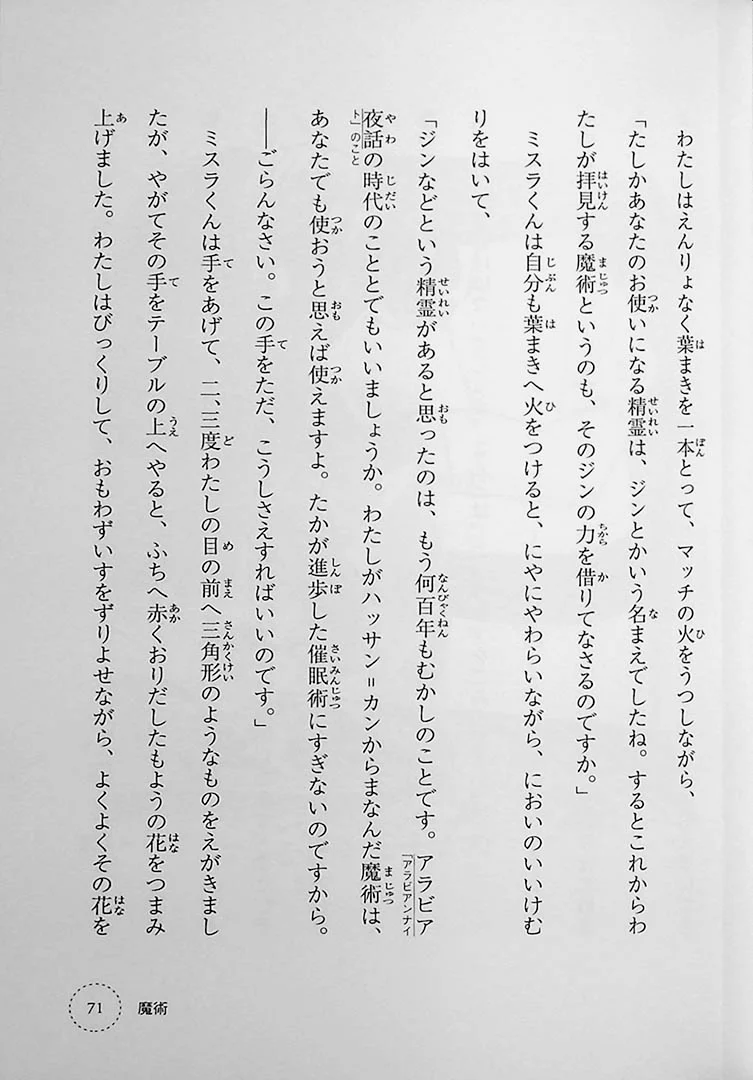 わたしはえんりょなく葉まきを一本とって、マッチの火をうつしながら、
「たしかあなたのお使いになる精霊は、ジンとかいう名まえでしたね。するとこれからわ
たしが拝見する魔術というのも、そのジンの力を借りてなさるのですか。」
ミスラくんは自分も葉まきへ火をつけると、にやにやわらいながら、においのいいけむ
りをはいて、
「ジンなどという精霊があると思ったのは、もう何百年もむかしのことです。アラビア
夜話の時代のこととでもいいましょうか。わたしがハッサン＝カンからまなんだ魔術は、
あなたでも使おうと思えば使えますよ。たかが進歩した催眠術にすぎないのですから。
――ごらんなさい。この手をただ、こうしさえすればいいのです。」
ミスラくんは手をあげて、二、三度わたしの目の前へ三角形のようなものをえがきまし
たが、やがてその手をテーブルの上へやると、ふちへ赤くおりだしたもようの花をつまみ
上げました。わたしはびっくりして、おもわずいすをずりよせながら、よくよくその花を
「アラビアンナイ
ト」のこと
71 魔術